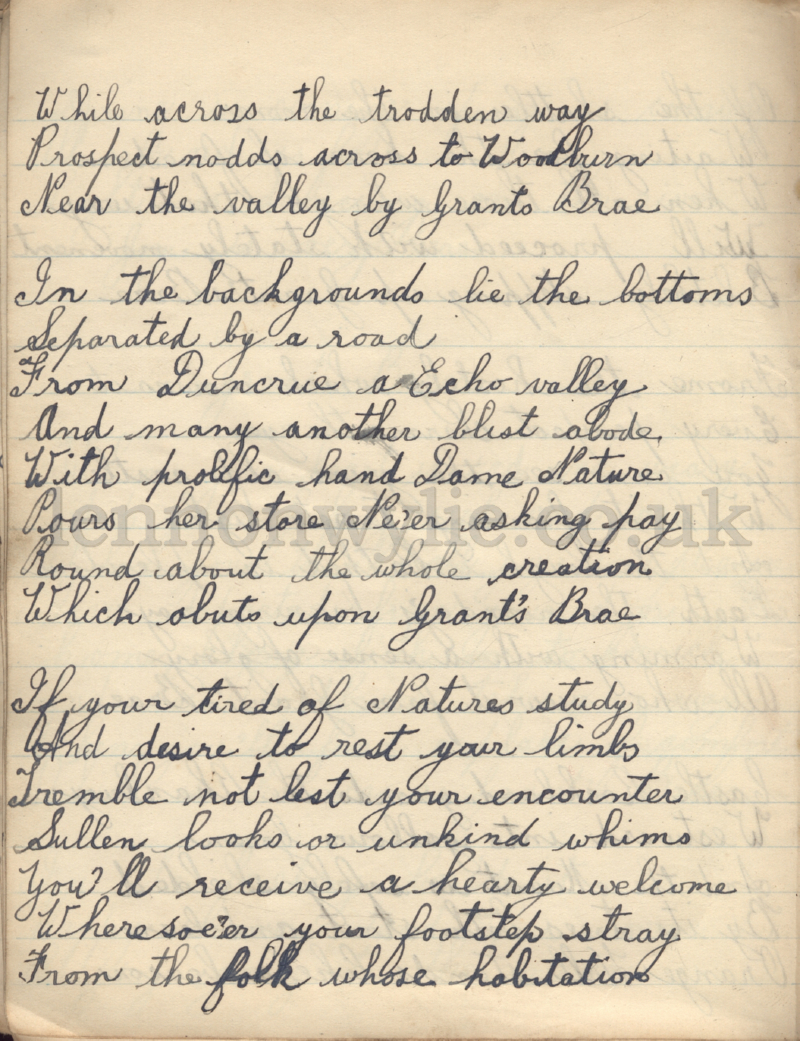 While across the trodden way
Prospect nodds across to Woodburn
Near the valley by Grants Brae
In the backgrounds lie the bottoms
Separated by a road
From Duncrue a Echo valley
And many another blest abode
With prolific hand Dame Nature
Pours her store Ne'er asking pay
Round about the whole creation
Which abuts upon Grant's Brae
If your tired of Natures study
And desire to rest your limbs
Tremble not lest your encounter
Sullen looks or unkind whims
You'll receive a hearty welcome
Wheresoe'er your footstep stray
From the folk whose habitation
lennonwylie.co.uk